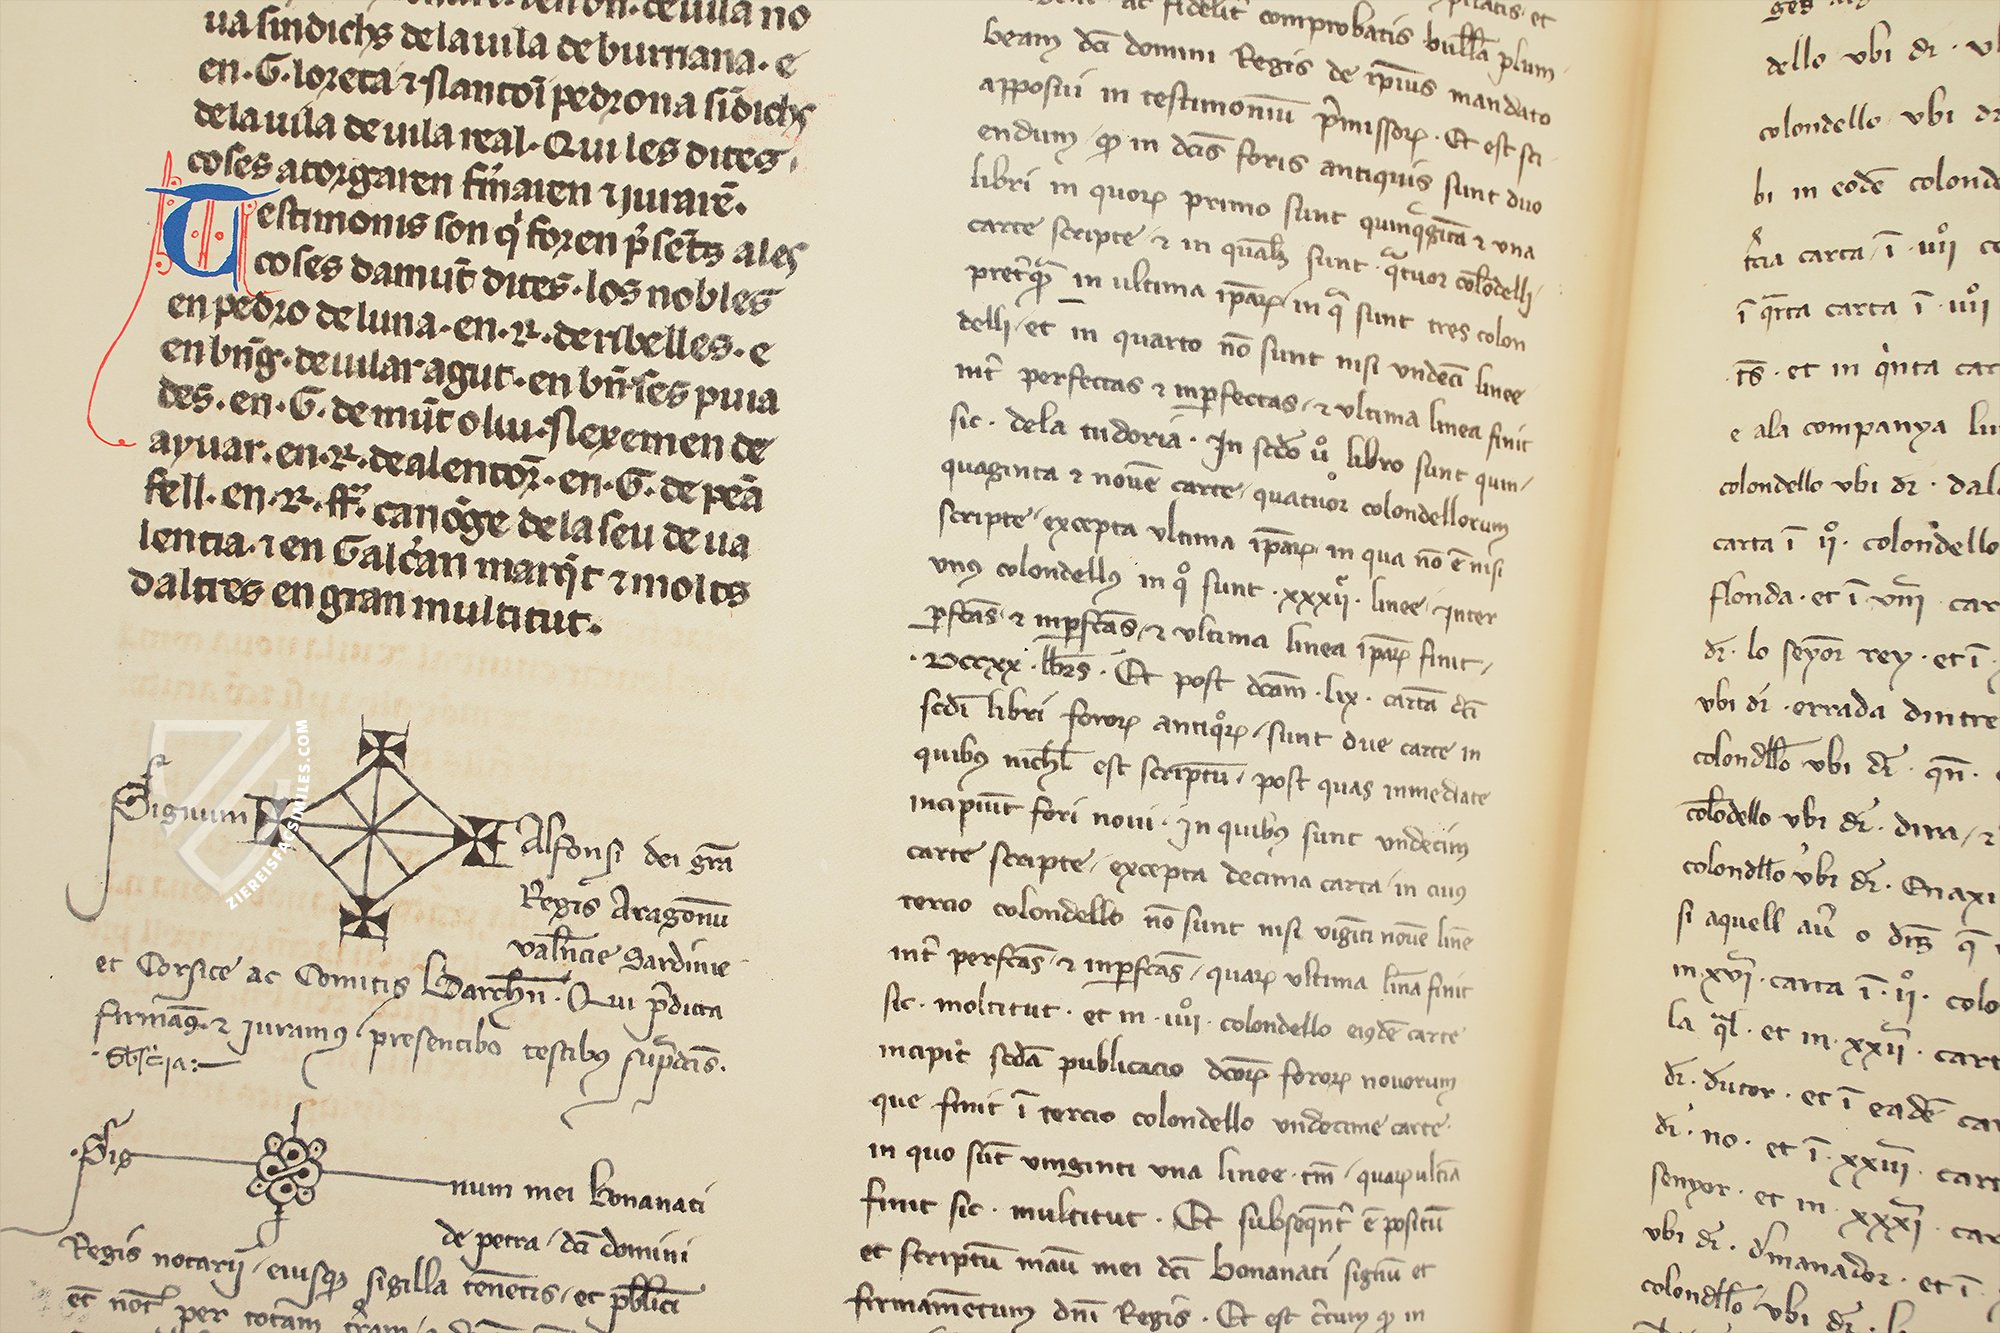 ua sindichs dela uila de burriana · e
en · G · loreta ⁊ Nantoī pedrona sīdichs
dela uila de uila real · Qui les dites
coses atorgaren fmaren ⁊ iuraren̄ ·
Testimonis son q foren p̄sēts ales
coses damūt dites · los nobles
en pedro de luna · en · R · de ribelles · e
en bn̄g · de uilaragut · en bn̄ · ses puia
des · en · G · de mūt oliu · Nexemen de
ayuar · en · R · de alentor̄ · en · G · de peā
fell · en · R · ff · canōge dela seu de ua
lentia · ⁊ en Galc̄an marq̄t ⁊ molts
daltres en gran multitut ·
Signum Alfonsi dei gr̄a
Regis Aragonū
valn̄cie Sardinie
et Corsice ac Comitis Barchn̄ · Qui p̄dicta
firmam⁹ · ⁊ iuram⁹ presentib⁹ testib⁹ sup̄dc̄is ·
Sig num mei Bonanati
de petra / dc̄i domini
Regis notarij / eiusq sigilla tenētis / et publici
et not per totam
fidelit comprobatis bulla plum
beam dc̄i domini Regis de ip̄ius mandato
apposui in testimoniū p̄missor · Et est sci
endum q in dc̄is foris antiquis sunt duo
libri in quor primo sunt quinq̄ginta ⁊ una
carte scripte / ⁊ in qualib sunt q̄tuor colōdelli /
pret̄q̄ in ultima ip̄ar / in q̄ sunt tres colon
delli / et in quarto nō sunt nisi undecī linee
int̄ perfectas ⁊ inperfectas / ⁊ ultima linea finit
sic · dela tudoria · In sc̄do ů libro sunt quin /
quaginta ⁊ novē carte / quatuor colondellorum
scripte / excepta ultima ip̄ar in qua nō ē nisi
unus colondellus in q̊ sunt · xxxij · linee / inter
p̄fc̄as ⁊ inp̄fc̄as / ⁊ ultima linea ip̄ar finit /
· Dccxx · lb̄rs · Et post dc̄am · lix · cartā dc̄i
sc̄di libri foror antiq̊r / sunt due carte in
quib⁹ nich̄l est scriptū / post quas inmediate
incipiūt fori novi · in quib⁹ sunt undecim
carte scripte / excepta decima carta / in cui⁹
tercio colondello nō sunt nisi viginti novē linē
int̄ perfc̄as / ⁊ inp̄fc̄as / quar ultima linā finit
sic · moltitut · et in · iiijº · colondello eiusdē carte
incipit sc̄da publicacio dc̄or foror novorum
que finit ī tercio colondello undecime carte ·
in quo sūt viginti una linee · tm̄ / quar ultīa
finit sic · multitut · Et subseqn̄t ē positū
et scriptū manū mei dc̄i Bonanati signū et
firmamētum dn̄i Regis · Et est c̄tum q in
dello ubi dr̄ ·
colondello / ubi
bi in eodē colond
t̄cia carta / ī · iiijº
ī q̄rta carta ī · iiijº
ts̄ · et in q̄nta car
e ala companya
colondello ubi dr̄ · dala
carta ī · ijº · colondello
flonda · et ī · viijª car
dr̄ · lo seyor rey · et ī ·
ubi dr̄ · errada dintre
colondllo ubi dr̄ · qn̄ ·
colōdello ubi dr̄ · dita / ⁊
colondllo ubi dr̄ · En axi
si aquell
in xvjª · carta ī · ijº · colo
la q̄l · et in · xxijª · cart
dr̄ · dutor · et ī eadē ca
dr̄ · no · et ī · xxiijª · car
senyor · et in · xxxjª · ca
ubi dr̄ · dmanador · et ī ·
colondllo / ubi dr̄
ZIEREISFACSIMILES.COM